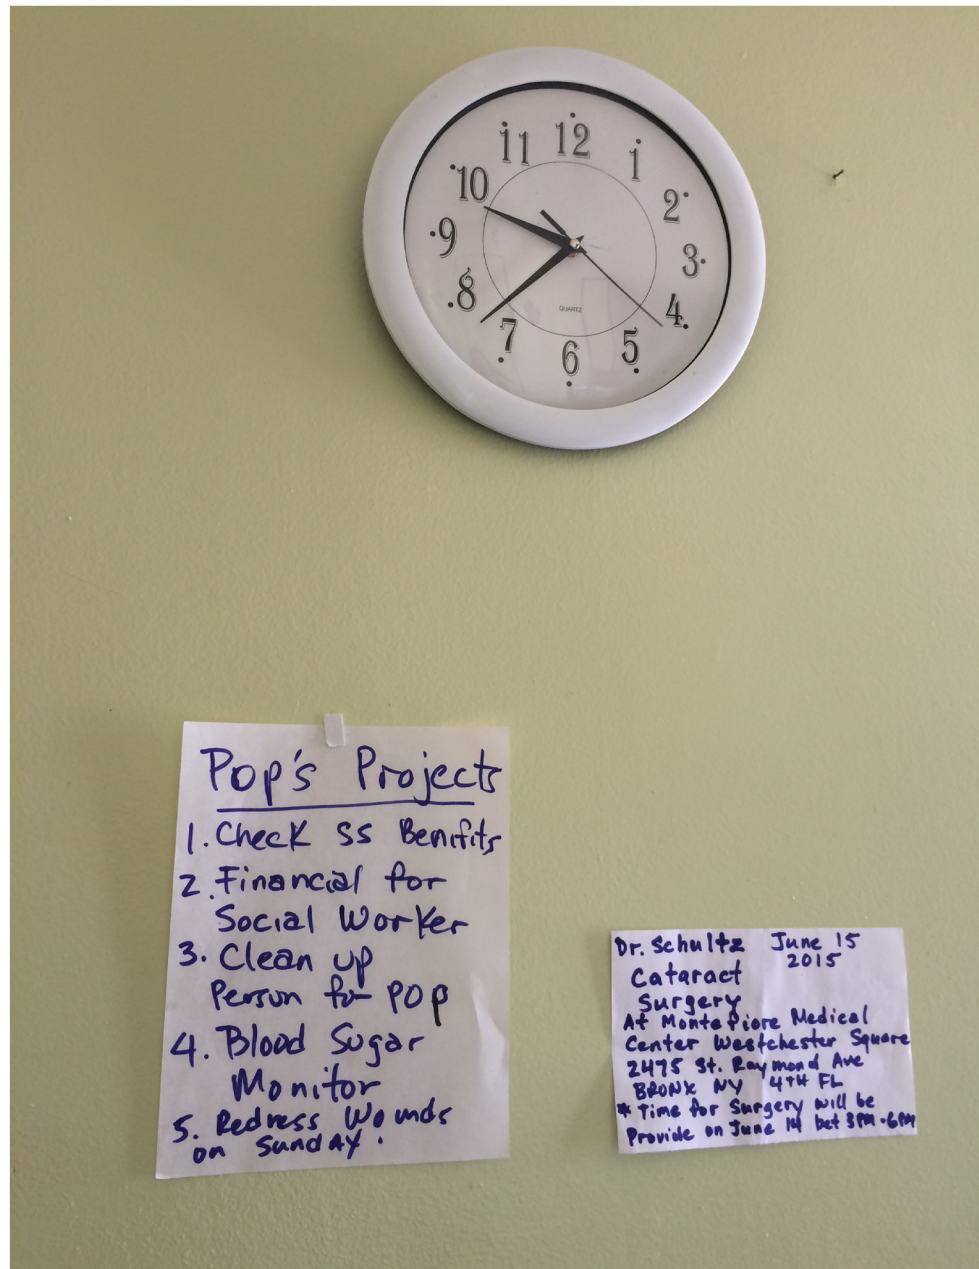 12
1
2
3
4
5
6
7
8
9
10
11
QUARTZ
Pop's Projects
1. Check SS Benifits
2. Financial for
Social Worker
3. Clean up
Person for POP
4. Blood Sugar
Monitor
5. Redress Wounds
on Sunday.
Dr. Schultz June 15
2015
Cataract
Surgery
At Montefiore Medical
Center Westchester Square
2475 St. Raymond Ave
BRONX NY 4TH FL
* Time for Surgery will be
Provide on June 14 bet 3PM-6PM